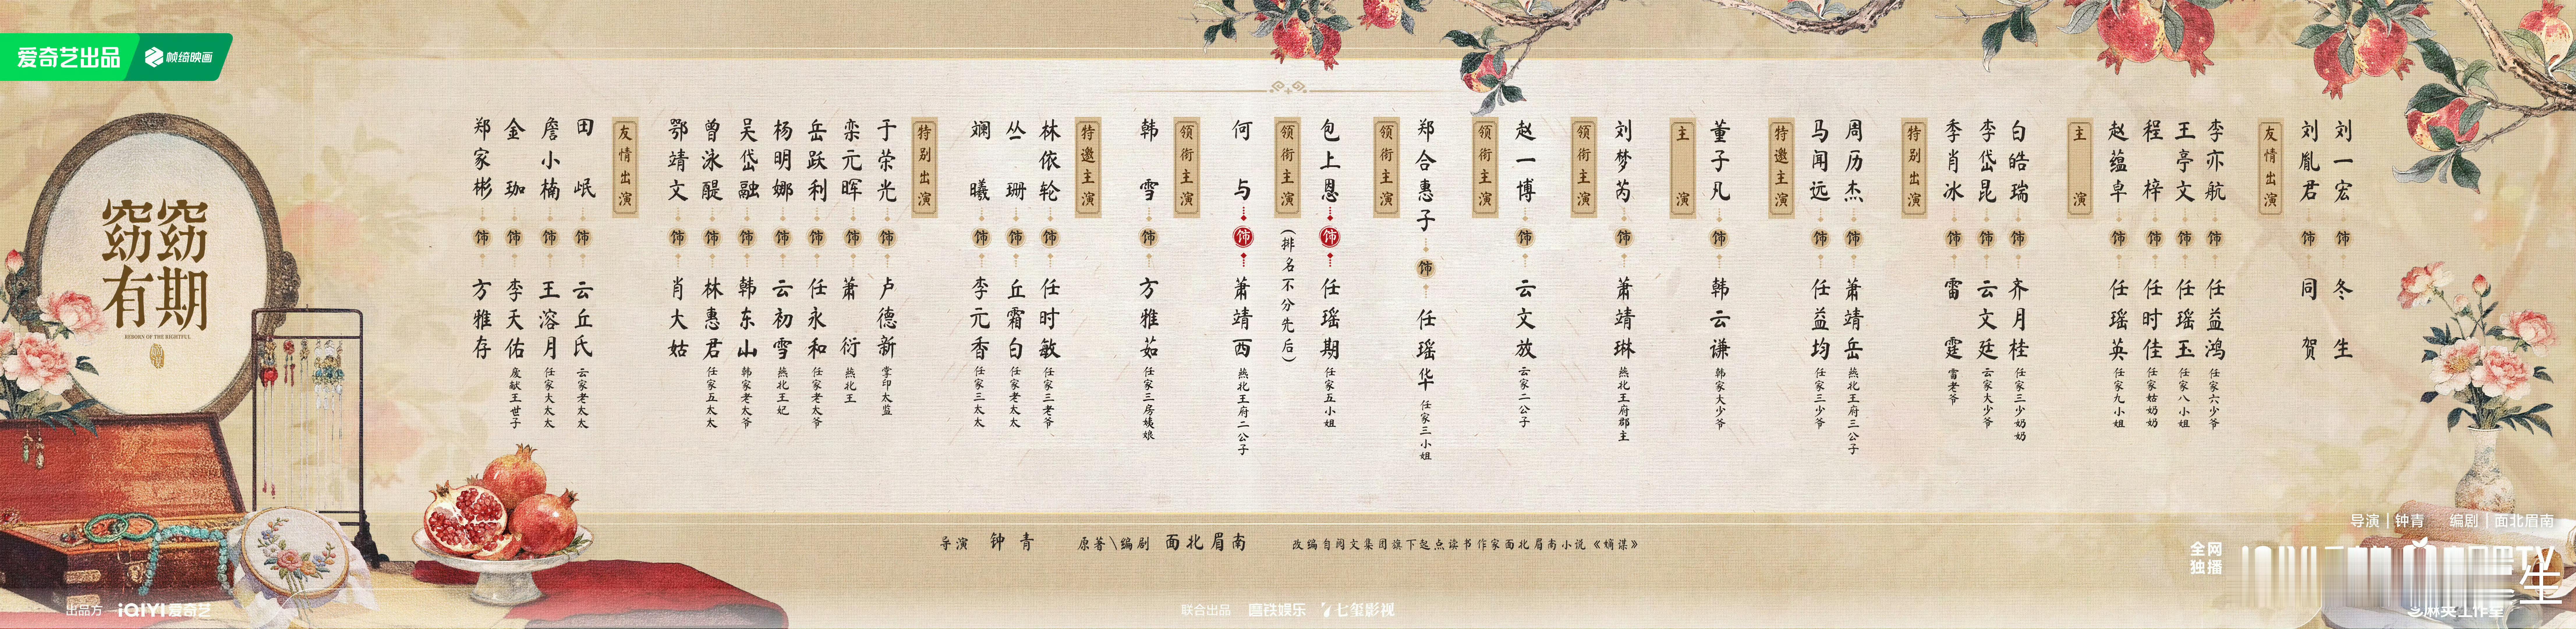 爱奇艺出品
帧绮映画
窈窈有期
REBORN OF THE RIGHTFUL
郑家彬 饰 方雅存
金珈 饰 李天佑 废献王世子
詹小楠 饰 王溶月 任家大太太
田岷 饰 云丘氏 云家老太太
友情出演
鄂靖文 饰 肖大姑
曾泳醍 饰 林惠君 任家五太太
吴岱融 饰 韩东山 韩家老太爷
杨明娜 饰 云初雪 燕北王妃
岳跃利 饰 任永和 任家老太爷
栾元晖 饰 萧衍 燕北王
于荣光 饰 卢德新 掌印太监
特别出演
斓曦 饰 李元香 任家三太太
丛珊 饰 丘霜白 任家老太太
林依轮 饰 任时敏 任家三老爷
特邀主演
韩雪 饰 方雅茹 任家三房姨娘
领衔主演
何与 饰 萧靖西 燕北王府二公子
领衔主演
(排名不分先后)
包上恩 饰 任瑶期 任家五小姐
领衔主演
郑合惠子 饰 任瑶华 任家三小姐
领衔主演
赵一博 饰 云文放 云家二公子
领衔主演
刘梦芮 饰 萧靖琳 燕北王府郡主
主演
董子凡 饰 韩云谦 韩家大少爷
特邀主演
马闻远 饰 任益均 任家三少爷
周历杰 饰 萧靖岳 燕北王府三公子
特别出演
季肖冰 饰 雷霆 雷老爷
李岱昆 饰 云文廷 云家大少爷
白皓瑞 饰 齐月桂 任家三少奶奶
主演
赵蕴卓 饰 任瑶英 任家九小姐
程梓 饰 任时佳 任家姑奶奶
王亭文 饰 任瑶玉 任家八小姐
李亦航 饰 任益鸿 任家六少爷
友情出演
刘胤君 饰 同贺
刘一宏 饰 冬生
导演 钟青
原著\编剧 面北眉南
改编自阅文集团旗下起点读书作家面北眉南小说《嫡谋》
导演 | 钟青 编剧 | 面北眉南
全网独播
TV
出品方 iQIYI爱奇艺
联合出品 磨铁娱乐 七玺影视